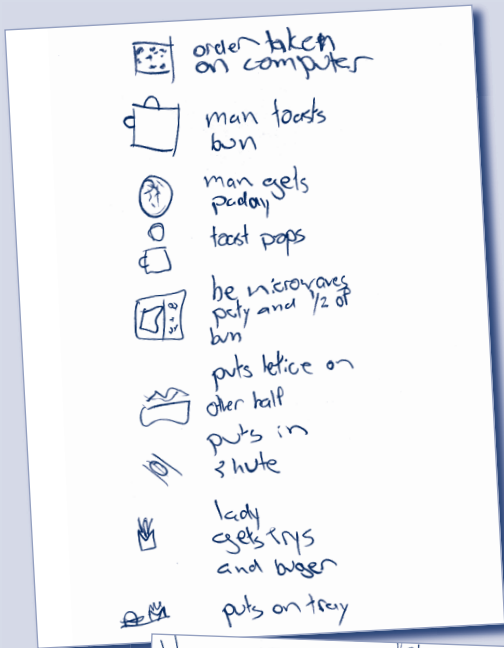 order taken
on computer
man toasts
bun
man gets
paday
toast pops
be microwaves
paty and 1/2 of
bun
puts letice on
other half
puts in
shute
lady
gets frys
and buger
puts on tray